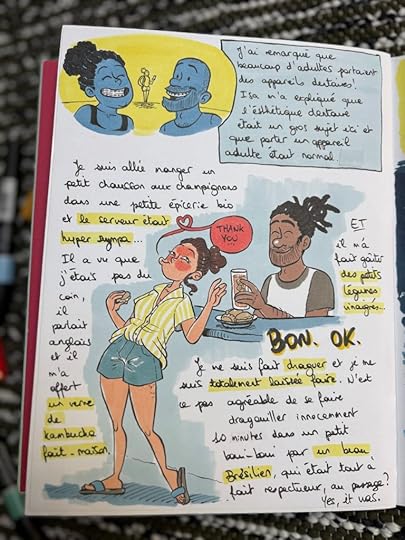 J'ai remarqué que
beaucoup d'adultes portaient
des appareils dentaires!
Isa m'a expliqué que
l'esthétique dentaire
était un gros sujet ici et
que porter un appareil
adulte était normal.
Je suis allée manger un
petit chausson aux champignons
dans une petite épicerie bio
et le serveur était
hyper sympa...
THANK
YOU...
Il a vu que
j'étais pas du
coin,
il
parlait
anglais
et il
m'a
offert
un verre
de
kombucha
fait-maison.
ET
il m'a
fait goûter
des petits
légumes
vinaigrés...
BON. OK.
Je me suis fait draguer et je me
suis totalement laissée faire. N'est
ce pas agréable de se faire
dragouiller innocemment
10 minutes dans un petit
boui-boui par un beau
Brésilien, qui était tout à
fait respectueux, au passage?
Yes, it was.